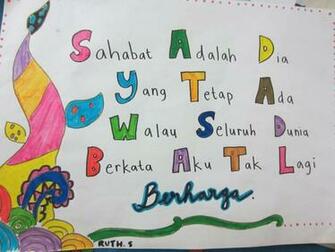 Sahabat Adalah Dia
Yang Tetap Ada
Walau Seluruh Dunia
Berkata Aku Tak Lagi
Berharga.
RUTH. S